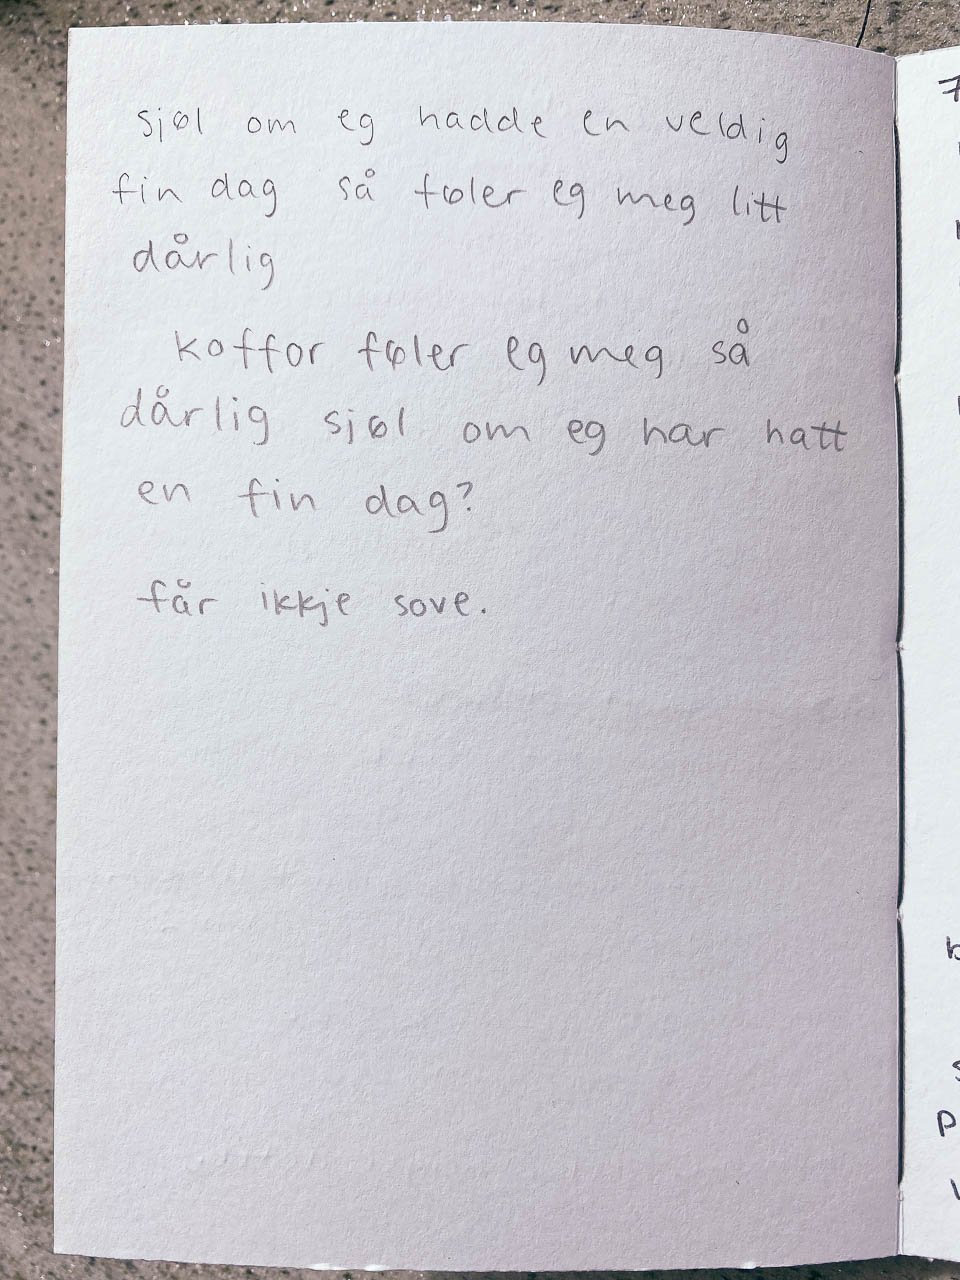 sjøl om eg hadde en veldig
fin dag så føler eg meg litt
dårlig
koffor føler eg meg så
dårlig sjøl om eg har hatt
en fin dag?
får ikkje sove.